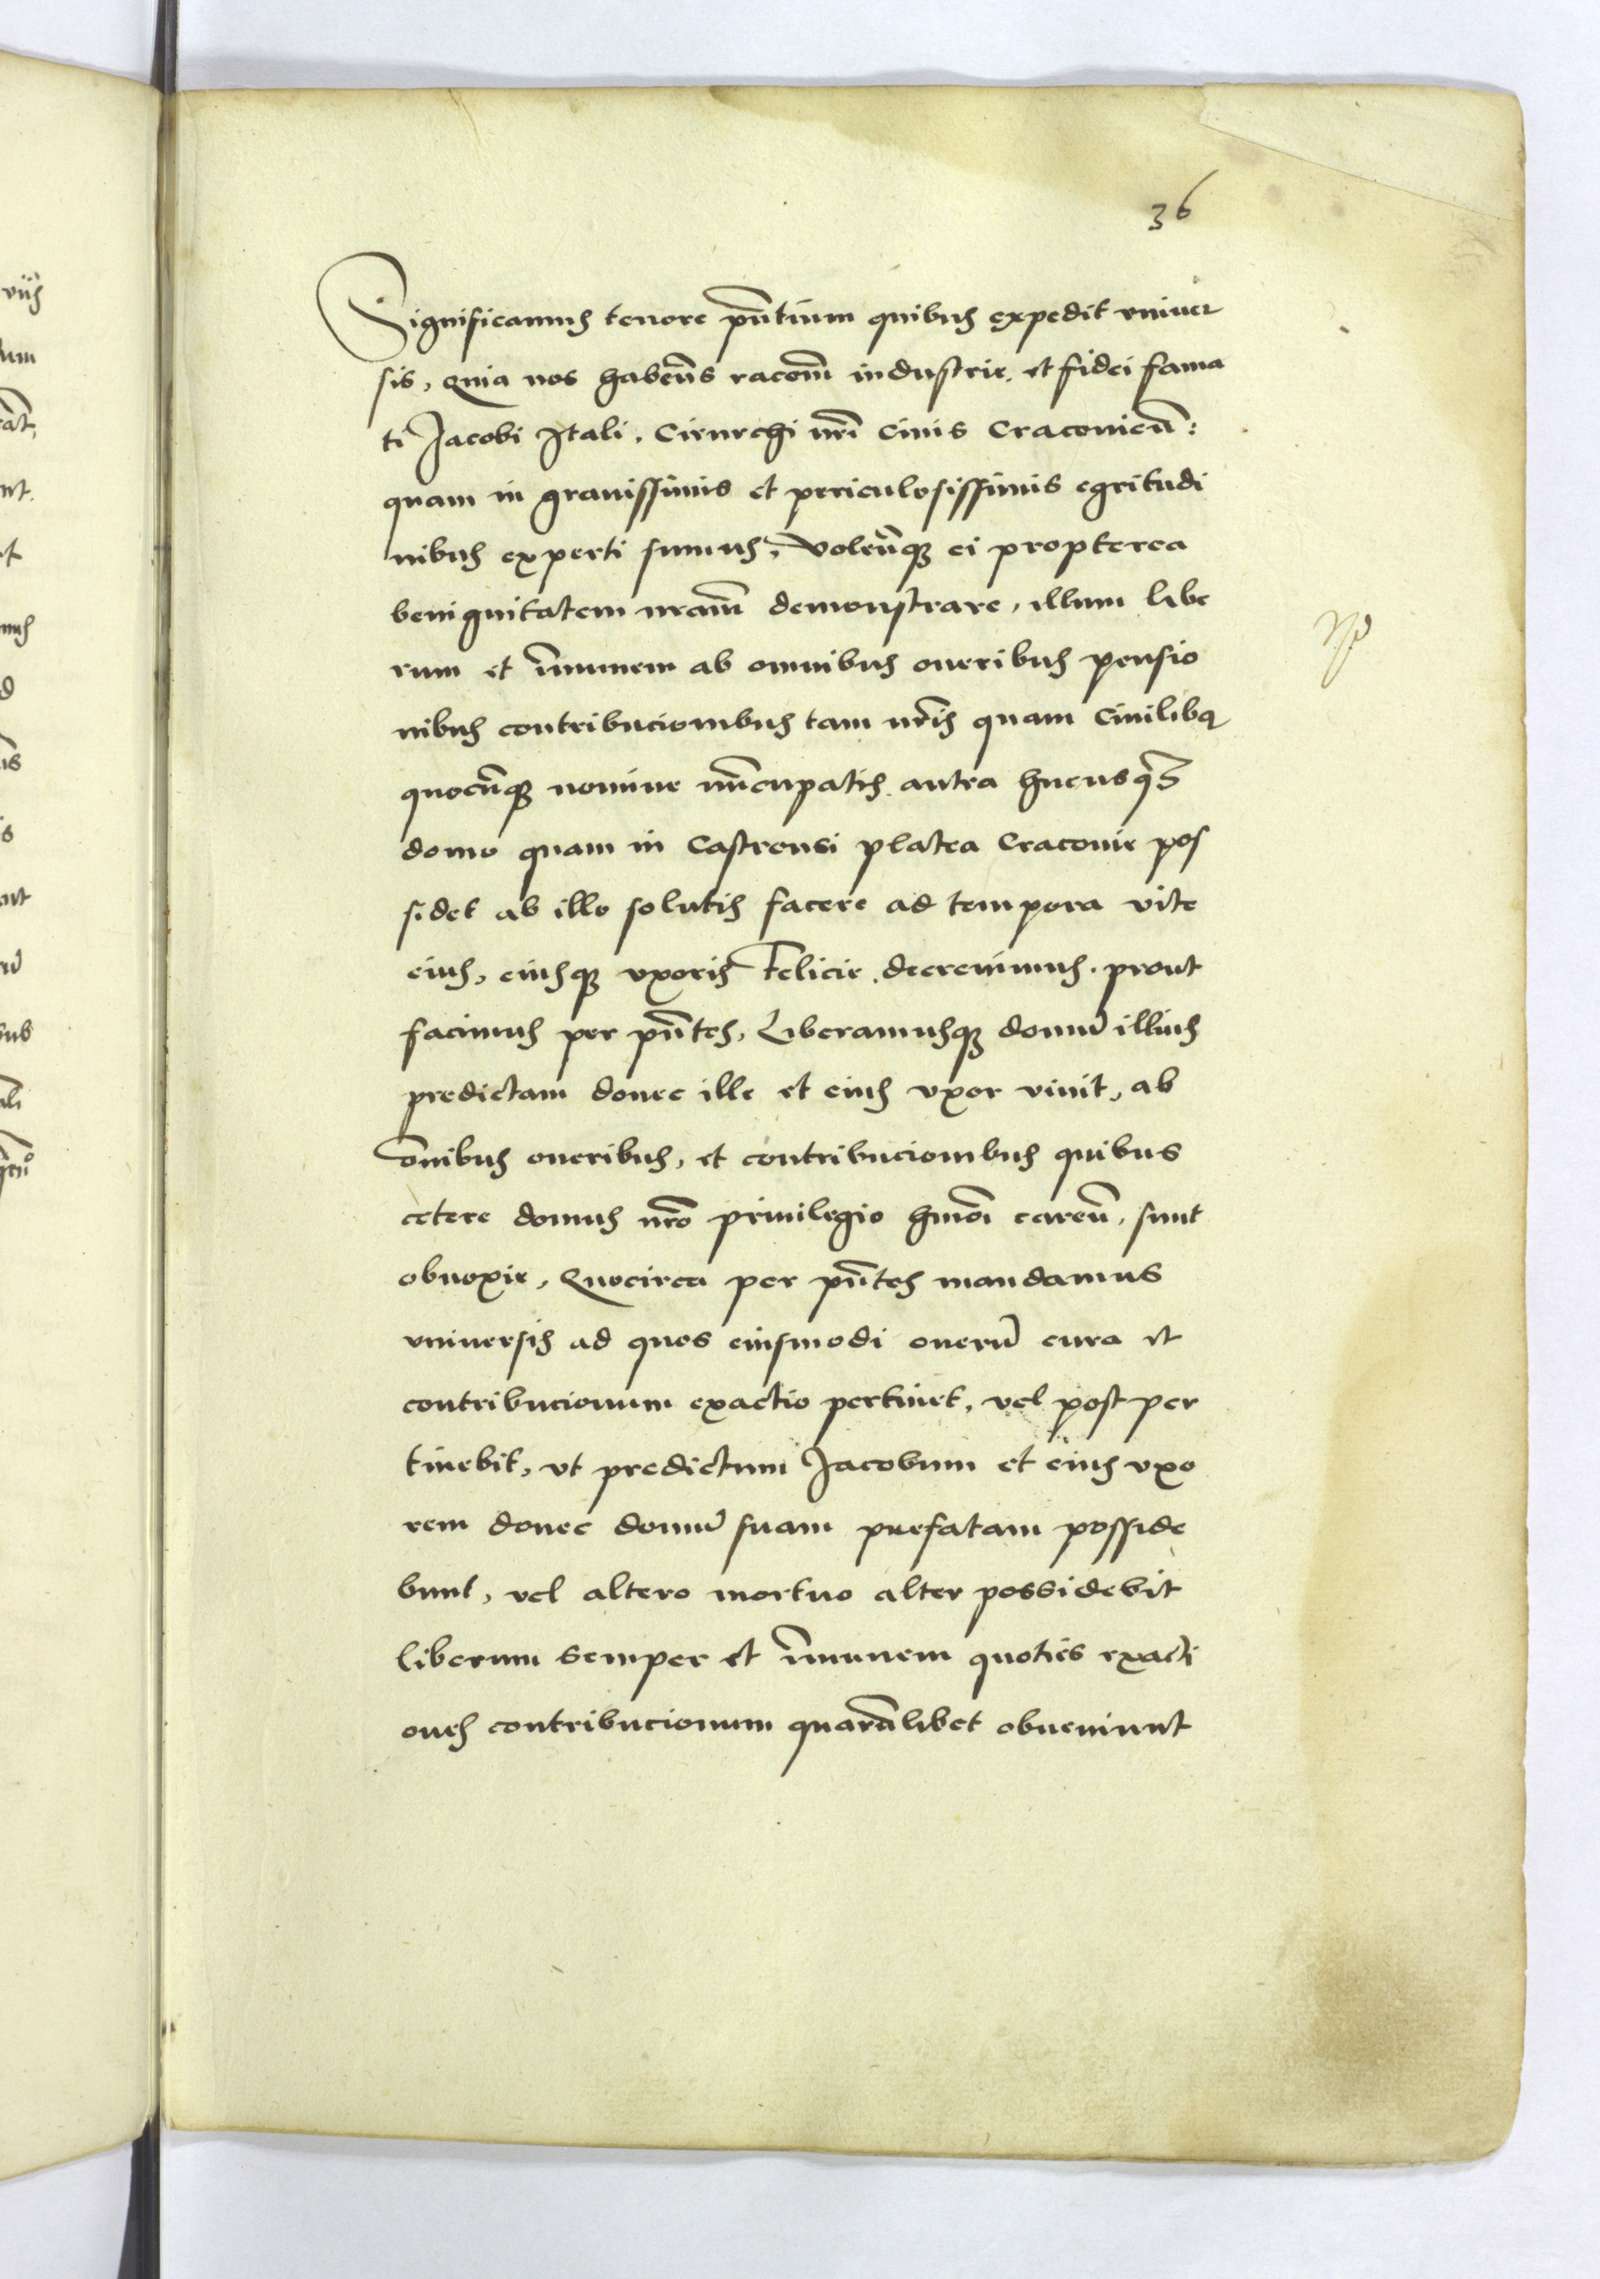 36
Significamus tenore pñtium quibus expedit vniuer
sis, Quia nos habeñs racoem̃ industrie et fidei fama
ti Jacobi Itali, Cirurchi nri Ciuis Cracouieñ:
quam in grauissimis et periculosissimis egritudi
nibus experti sumus, Voleñqȝ ei propterea
benignitatem nram̃ demonstrare, illum libe
rum et im̃unem ab omnibus oneribus pensio
nibus contribucionibus tam nris̃ quam Ciuilibꝫ
quocũqȝ nomine nũcupatis antea hucusqȝ
domo quam in Castrensi platea Cracouie pos
sidet ab illo solutis facere ad tempora vite
eius, eiusqȝ vxoris Felicie decreuimus prout
facimus per pñtes, Liberamusqȝ domũ illius
predictam donec ille et eius vxor viuit, ab
om̃ibus oneribus, et contribucionibus quibus
cetere domus nro priuilegio hmoi careñ, sunt
obnoxie, Quocirca per pñtes mandamus
vniuersis ad quos eiusmodi onerũ cura et
contribucionum exactio pertinet, vel post per
tinebit, vt predictum Jacobum et eius vxo
rem donec domũ suam prefatam posside
bunt, vel altero mortuo alter possidebit
liberum semper et im̃unem quoties exacti
ones contribucionum quarũlibet obueniunt